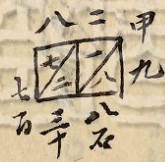 八二
甲九
七二
一八
七百
三十
八石